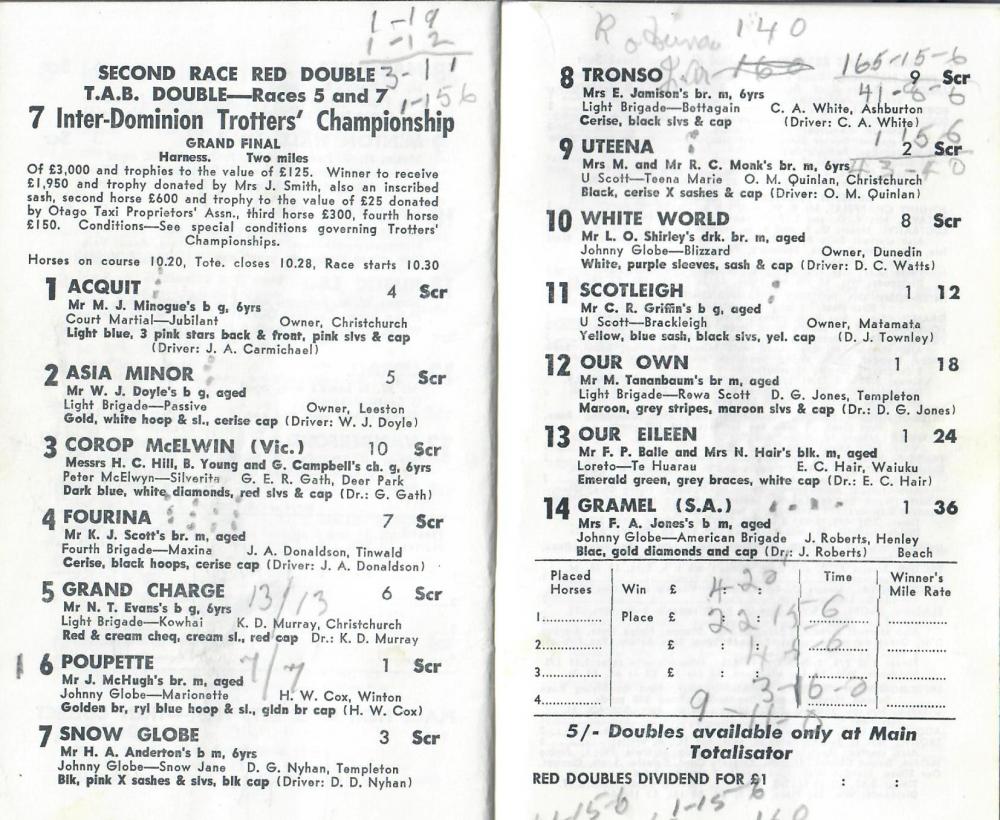 1-19
1-12
3-11
1-15 6
SECOND RACE RED DOUBLE
T.A.B. DOUBLE—Races 5 and 7
7 Inter-Dominion Trotters' Championship
GRAND FINAL
Harness. Two miles
Of £3,000 and trophies to the value of £125. Winner to receive
£1,950 and trophy donated by Mrs J. Smith, also an inscribed
sash, second horse £600 and trophy to the value of £25 donated
by Otago Taxi Proprietors' Assn., third horse £300, fourth horse
£150. Conditions—See special conditions governing Trotters'
Championships.
Horses on course 10.20, Tote. closes 10.28, Race starts 10.30
1 ACQUIT 4 Scr
Mr M. J. Minogue's b g, 6yrs
Court Martial—Jubilant Owner, Christchurch
Light blue, 3 pink stars back & front, pink slvs & cap
(Driver: J. A. Carmichael)
2 ASIA MINOR 5 Scr
Mr W. J. Doyle's b g, aged
Light Brigade—Passive Owner, Leeston
Gold, white hoop & sl., cerise cap (Driver: W. J. Doyle)
3 COROP McELWIN (Vic.) 10 Scr
Messrs H. C. Hill, B. Young and G. Campbell's ch. g, 6yrs
Peter McElwyn—Silverita G. E. R. Gath, Deer Park
Dark blue, white diamonds, red slvs & cap (Dr.: G. Gath)
4 FOURINA 7 Scr
Mr K. J. Scott's br. m, aged
Fourth Brigade—Maxina J. A. Donaldson, Tinwald
Cerise, black hoops, cerise cap (Driver: J. A. Donaldson)
5 GRAND CHARGE 6 Scr
Mr N. T. Evans's b g, 6yrs 13/13
Light Brigade—Kowhai K. D. Murray, Christchurch
Red & cream cheq, cream sl., red cap Dr.: K. D. Murray
1 6 POUPETTE 7/7 1 Scr
Mr J. McHugh's br. m, aged
Johnny Globe—Marionette H. W. Cox, Winton
Golden br, ryl blue hoop & sl., gldn br cap (H. W. Cox)
7 SNOW GLOBE 3 Scr
Mr H. A. Anderton's b m, 6yrs
Johnny Globe—Snow Jane D. G. Nyhan, Templeton
Blk, pink X sashes & slvs, blk cap (Driver: D. D. Nyhan)
140
160 165-15-6
8 TRONSO 9 Scr
Mrs E. Jamison's br. m, 6yrs
Light Brigade—Bettagain C. A. White, Ashburton
Cerise, black slvs & cap (Driver: C. A. White)
9 UTEENA 2 Scr
Mrs M. and Mr R. C. Monk's br. m, 6yrs
U Scott—Teena Marie O. M. Quinlan, Christchurch
Black, cerise X sashes & cap (Driver: O. M. Quinlan)
10 WHITE WORLD 8 Scr
Mr L. O. Shirley's drk. br. m, aged
Johnny Globe—Blizzard Owner, Dunedin
White, purple sleeves, sash & cap (Driver: D. C. Watts)
11 SCOTLEIGH 1 12
Mr C. R. Griffin's b g, aged
U Scott—Brackleigh Owner, Matamata
Yellow, blue sash, black slvs, yel. cap (D. J. Townley)
12 OUR OWN 1 18
Mr M. Tananbaum's br m, aged
Light Brigade—Rewa Scott D. G. Jones, Templeton
Maroon, grey stripes, maroon slvs & cap (Dr.: D. G. Jones)
13 OUR EILEEN 1 24
Mr F. P. Balle and Mrs N. Hair's blk. m, aged
Loreto—Te Huarau E. C. Hair, Waiuku
Emerald green, grey braces, white cap (Dr.: E. C. Hair)
14 GRAMEL (S.A.) 1 36
Mrs F. A. Jones's b m, aged
Johnny Globe—American Brigade J. Roberts, Henley
Blac, gold diamonds and cap (Dr.: J. Roberts) Beach
Placed Horses Win £ : : Time Winner's Mile Rate
1............. Place £ : :
2............. £ : :
3............. £ : :
4.............
5/- Doubles available only at Main
Totalisator
RED DOUBLES DIVIDEND FOR £1 : :
1-15-6